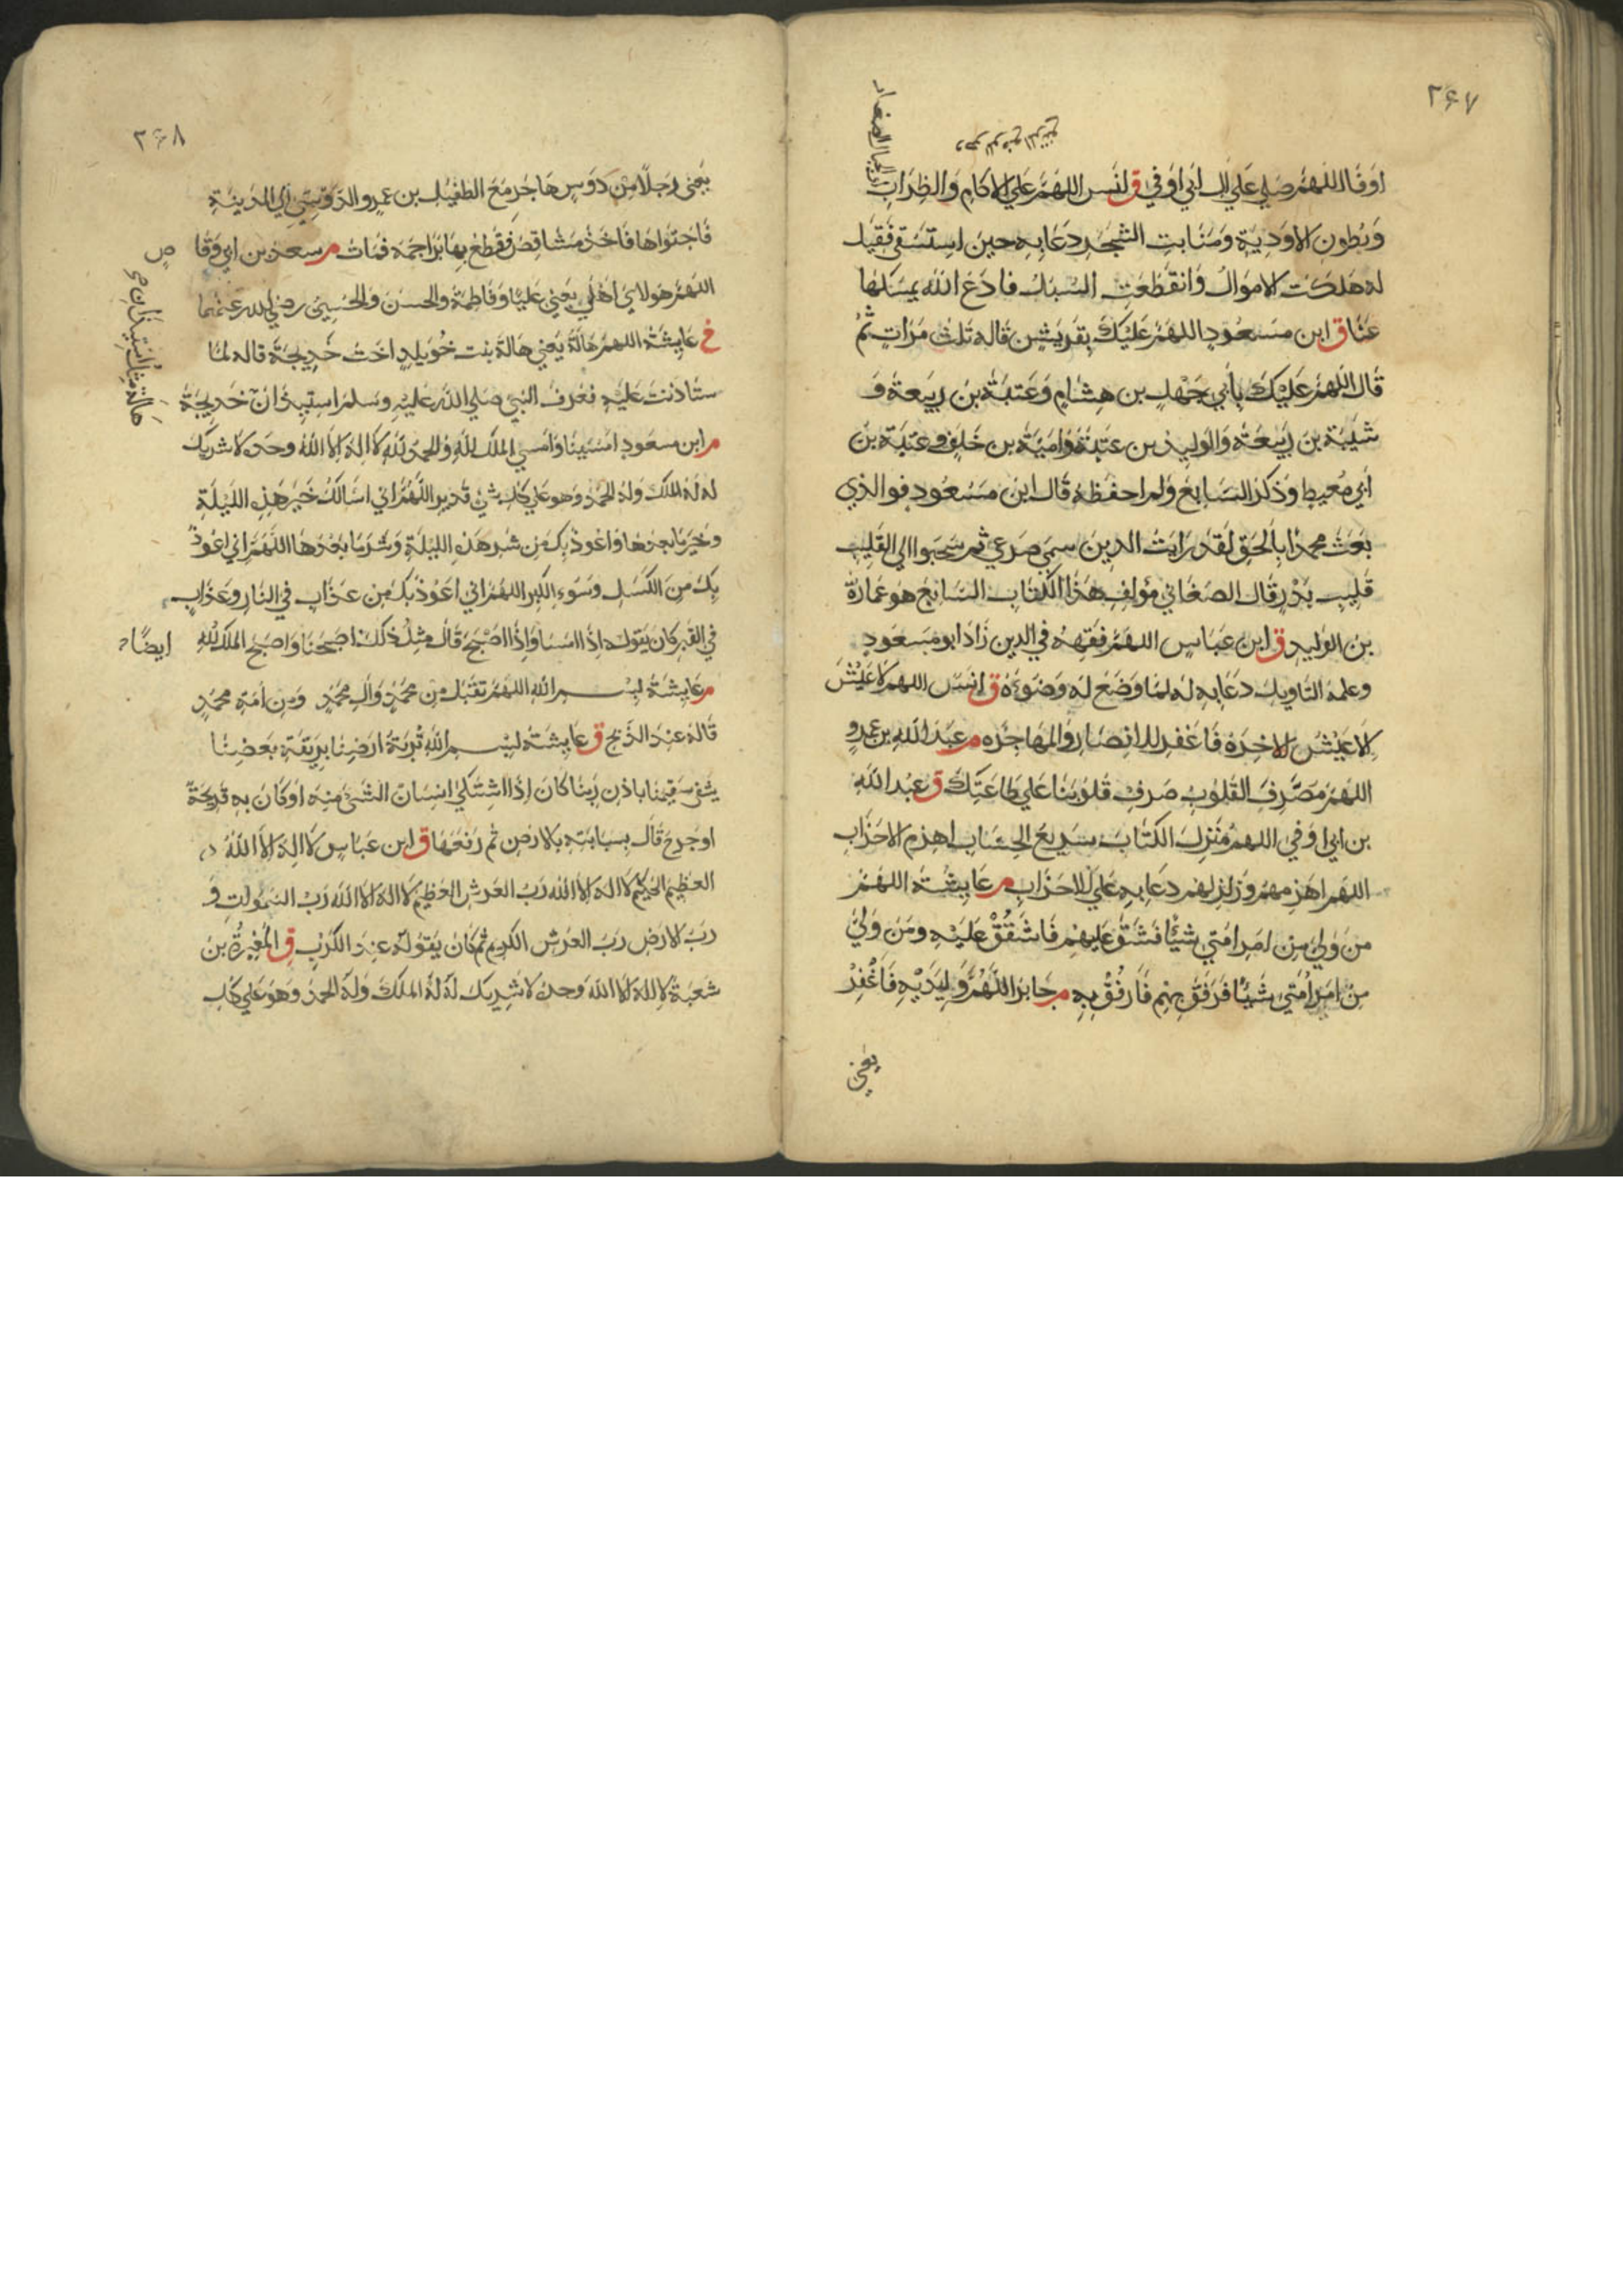 ٢٤٧
اوفا اللهم صلي علي ال ابي اوفي ق لنس اللهم علي الاكام والظراب
وبطون الاودية ومنابت الشجر دعا به حين استسقي فقيل
له هلكت الاموال وانقطعت السبل فادع الله يمسكها
عنا ق ابن مسعود اللهم عليك بقريش قاله ثلث مرات ثم
قال اللهم عليك بأبي جهل بن هشام وعتبة بن ربيعة و
شيبة بن ربيعة والوليد بن عتبة وامية بن خلف وعتبة بن
ابي معيط وذكر السابع ولم احفظه قال ابن مسعود فوالذي
بعث محمدا بالحق لقد رايت الدين سمي صرعي ثم سحبوا الي القليب
قليب بدر قال الصغاني مؤلف هذا الكتاب السابع هو عمارة
بن الوليد ق ابن عباس اللهم فقهه في الدين زاد ابو مسعود
وعلمه التاويل دعا به له لما وضع له وضوءه ق انس اللهم لا عيش
الا عيش الاخرة فاغفر للانصار والمهاجره م عبد الله بن عمرو
اللهم مصرف القلوب صرف قلوبنا علي طاعتك ق عبد الله
بن ابي اوفي اللهم منزل الكتاب سريع الحساب اهزم الاحزاب
اللهم اهزمهم وزلزلهم دعا به علي الاحزاب م عايشة اللهم
من ولي من امر امتي شيئا فشق عليهم فاشقق عليه ومن ولي
من امر امتي شيئا فرفق بهم فارفق به م جابر اللهم وليديه فاغفر
يعني
٢٤٨
يعني رجلا من دوس هاجر مع الطفيل بن عمرو الدوسي الي المدينة
فاجتواها فاخذ مشاقص فقطع بها براجمه فمات م سعد بن ابي وقا
ص
اللهم هولاي اهلي يعني عليا وفاطمة والحسن والحسين رضي الله عنهما
خ عايشة اللهم هالة يعني هالة بنت خويلد اخت خديجة قاله لما
ستاذنت عليه فعرف النبي صلي الله عليه وسلم استيذان خديجة
م ابن مسعود امسينا وامسي الملك لله والحمد لله لا اله الا الله وحده لا شريك
له له الملك وله الحمد وهو علي كل شئ قدير اللهم اني اسالك خير هذه الليلة
وخير ما بعدها واعوذ بك من شر هذه الليلة وشر ما بعدها اللهم اني اعوذ
بك من الكسل وسوء الكبر اللهم اني اعوذ بك من عذاب في النار وعذاب
في القبر كان يقوله اذا امسا واذا اصبح قال مثل ذلك اصبحنا واصبح الملك لله
ايضا
م عايشة بسم الله اللهم تقبل من محمد وال محمد ومن امة محمد
قاله عند الذبح ق عايشة بسم الله تربة ارضنا بريقة بعضنا
يشفي سقيمنا باذن ربنا كان اذا اشتكي انسان الشئ منه او كان به قرحة
او جرح قال بسبابته بالارض ثم رفعها ق ابن عباس لا اله الا الله
العظيم الحكيم لا اله الا الله رب العرش العظيم لا اله الا الله رب السموات و
رب الارض رب العرش الكريم ثم كان يقوله عند الكرب ق المغيرة بن
شعبة لا اله الا الله وحده لا شريك له له الملك وله الحمد وهو علي كل